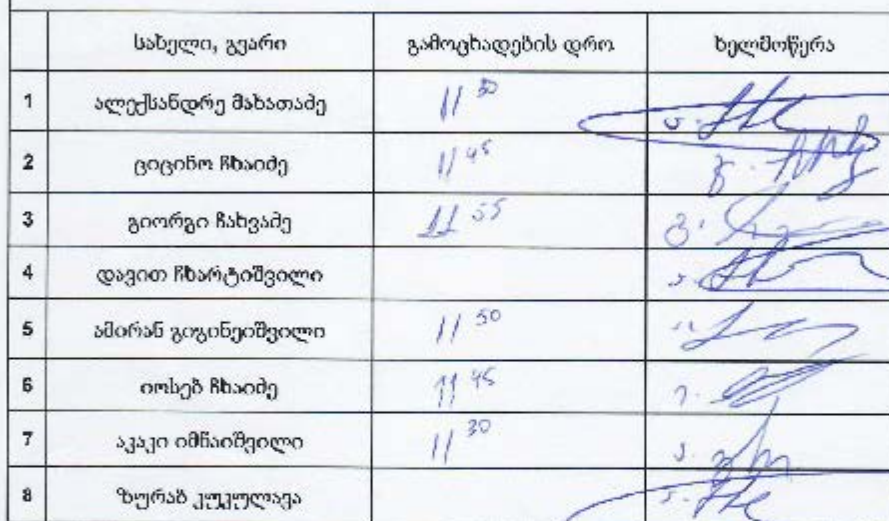 სახელი, გვარი გამოცხადების დრო ხელმოწერა
1 ალექსანდრე მახათაძე 11 30
2 ციცინო ჩხაიძე 11 45
3 გიორგი ჩახვაძე 11 55
4 დავით ჩხარტიშვილი
5 ამირან გიგინეიშვილი 11 50
6 იოსებ ჩხაიძე 11 45
7 აკაკი იმნაიშვილი 11 30
8 ზურაბ კუკულავა